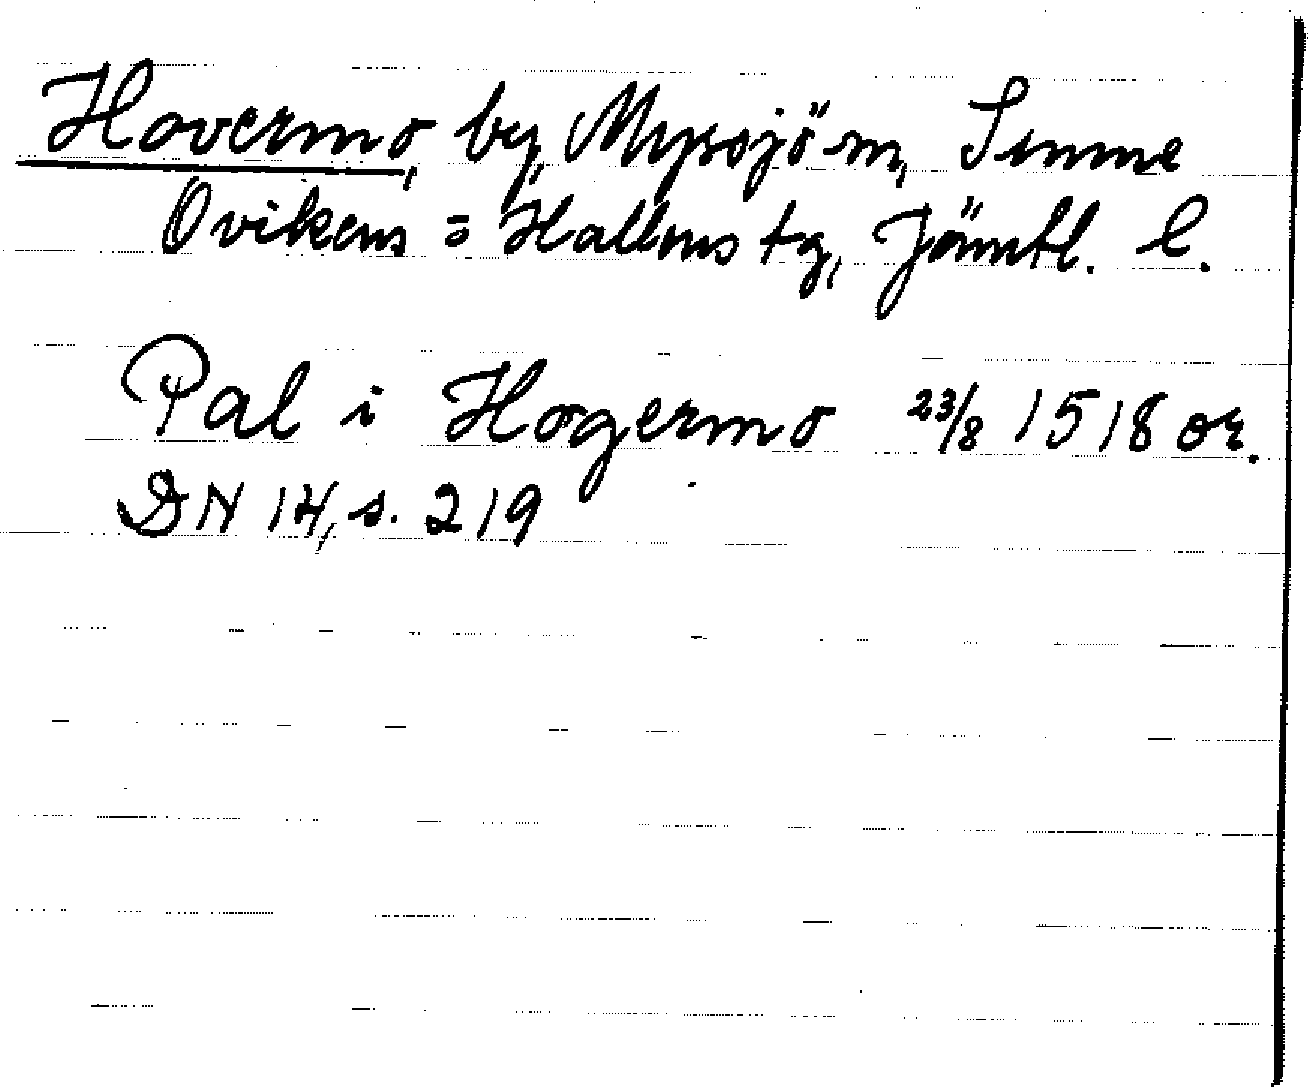 Hovermo, by, Myssjö sn, Sunne
Ovikens = Hallens tg, Jämtl. l.
Pal i Hogermo 23/8 1518 or.
DN 14, s. 219